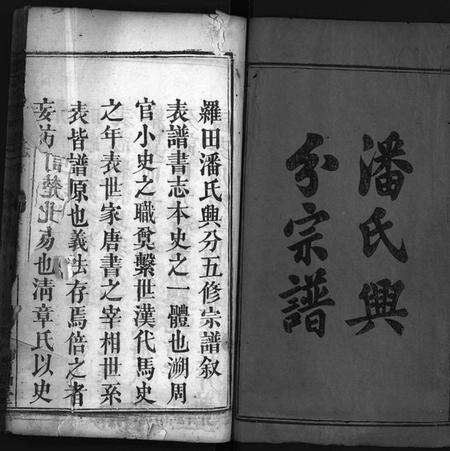 潘氏興
分宗譜
羅田潘氏興分五修宗譜叙
表譜書志本史之一體也溯周
官小史之職奠繫世漢代馬史
之年表世家唐書之宰相世系
表皆譜原也義法存焉倍之者
妄訪易也清章氏以史